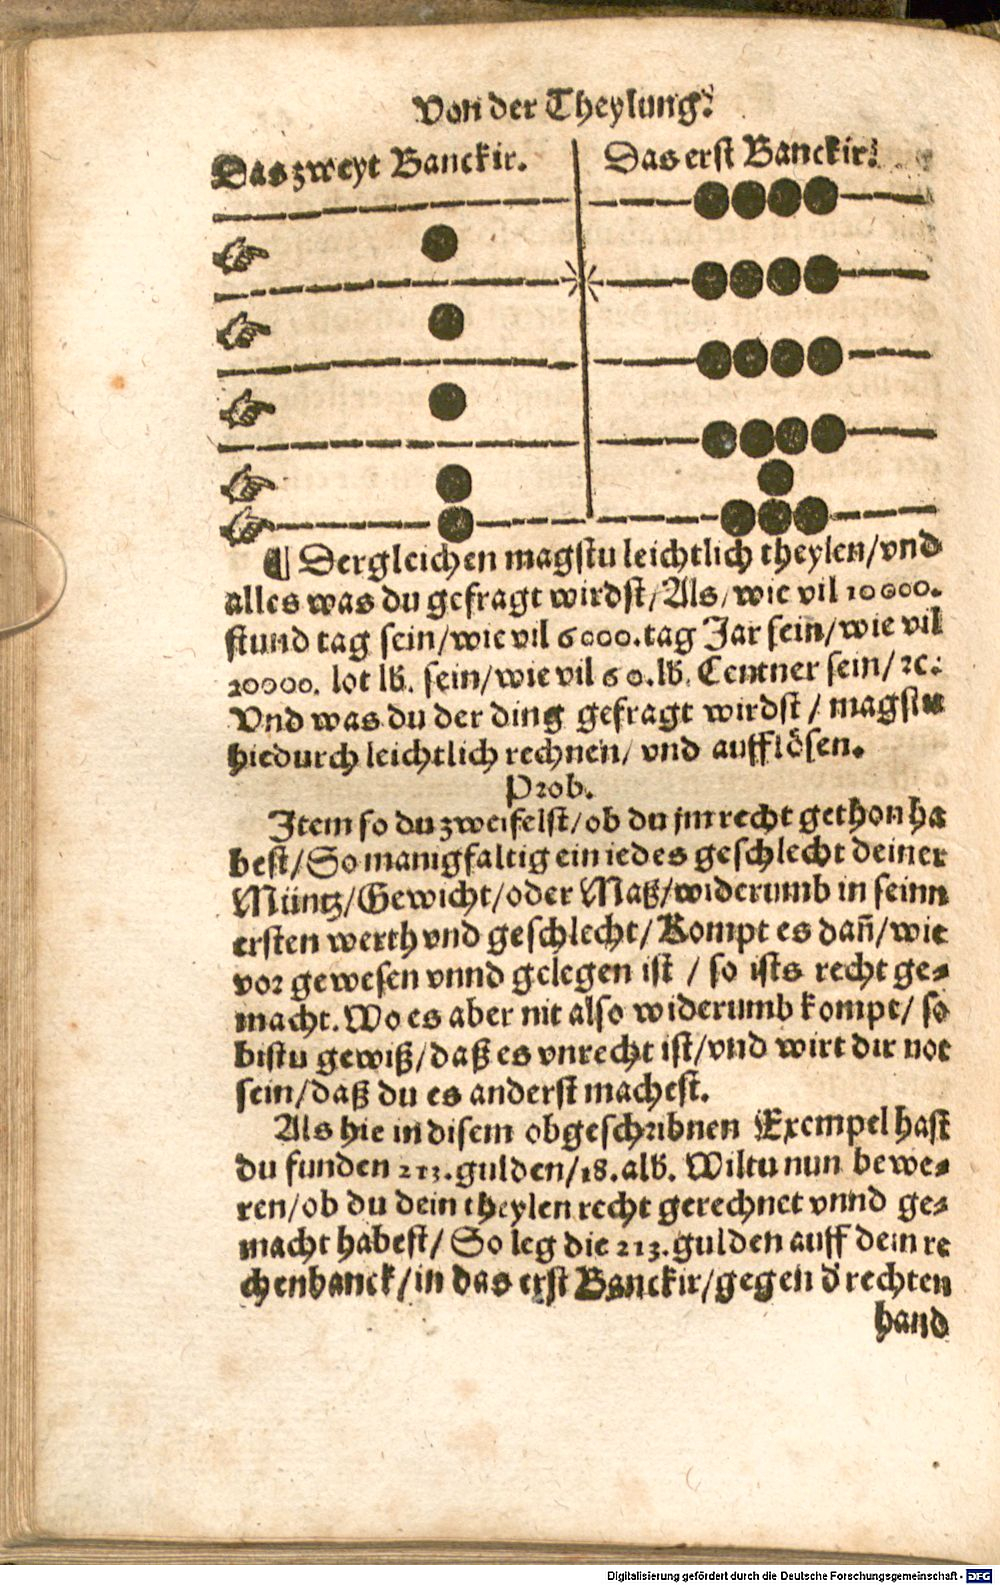 Von der Theylung.
Das zweyt Banckir.
Das erst Banckir.
¶ Dergleichen magstu leichtlich theylen/vnd
alles was du gefragt wirdst/Als/wie vil 10000.
stund tag sein/wie vil 6000.tag Jar sein/wie vil
20000. lot lb. sein/wie vil 60.lb. Centner sein/ꝛc.
Vnd was du der ding gefragt wirdst / magstu
hiedurch leichtlich rechnen/ vnd aufflösen.
Prob.
Item so du zweifelst/ob du jm recht gethon ha
best/So manigfaltig ein iedes geschlecht deiner
Müntz/Gewicht/oder Maß/widerumb in seinn
ersten werth vnd geschlecht/Kompt es dañ/wie
vor gewesen vnnd gelegen ist / so ists recht ge⸗
macht. Wo es aber nit also widerumb kompt/ so
bistu gewiß/daß es vnrecht ist/vnd wirt dir not
sein/daß du es anderst machest.
Als hie in disem obgeschribnen Exempel hast
du funden 213.gulden/18.alb. Wiltu nun bewe⸗
ren/ob du dein theylen recht gerechnet vnnd ge⸗
macht habest/ So leg die 213.gulden auff dein re
chenbanck/in das erst Banckir/gegen d' rechten
hand
Digitalisierung gefördert durch die Deutsche Forschungsgemeinschaft - DFG